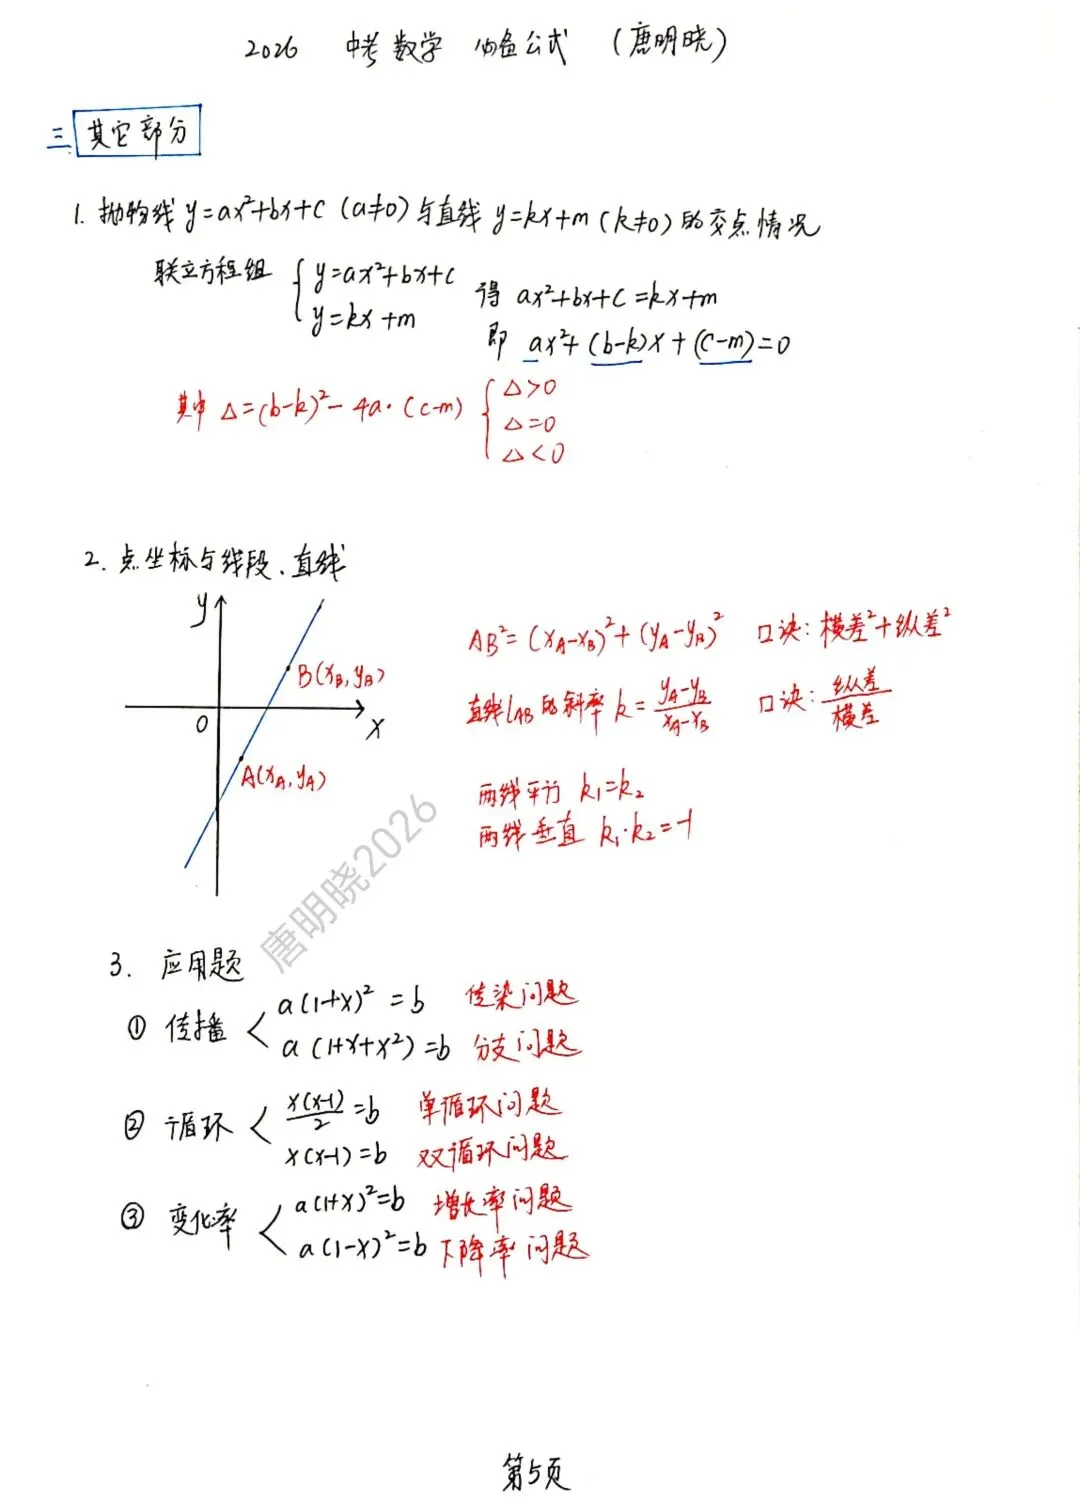 2026 中考数学 必备公式 (唐明晓)
三. 其它部分
1. 抛物线 y=ax²+bx+c (a≠0) 与直线 y=kx+m (k≠0) 的交点情况
联立方程组 { y=ax²+bx+c
y=kx+m
得 ax²+bx+c=kx+m
即 ax²+(b-k)x+(c-m)=0
其中 △=(b-k)²-4a·(c-m) { △>0
△=0
△<0
2. 点坐标与线段、直线
y
B(x_B, y_B)
O
x
A(x_A, y_A)
AB²=(x_A-x_B)²+(y_A-y_B)² 口诀: 横差²+纵差²
直线l_AB的斜率 k=(y_A-y_B)/(x_A-x_B) 口诀: 纵差/横差
两线平行 k₁=k₂
两线垂直 k₁·k₂=-1
唐明晓2026
3. 应用题
① 传播 < a(1+x)²=b 传染问题
a(1+x+x²)=b 分支问题
② 循环 < x(x-1)/2=b 单循环问题
x(x-1)=b 双循环问题
③ 变化率 < a(1+x)²=b 增长率问题
a(1-x)²=b 下降率问题
第5页